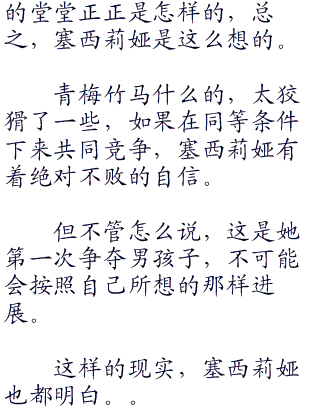 的堂堂正正是怎样的，总
之，塞西莉娅是这么想的。
青梅竹马什么的，太狡
猾了一些，如果在同等条件
下来共同竞争，塞西莉娅有
着绝对不败的自信。
但不管怎么说，这是她
第一次争夺男孩子，不可能
会按照自己所想的那样进
展。
这样的现实，塞西莉娅
也都明白。。